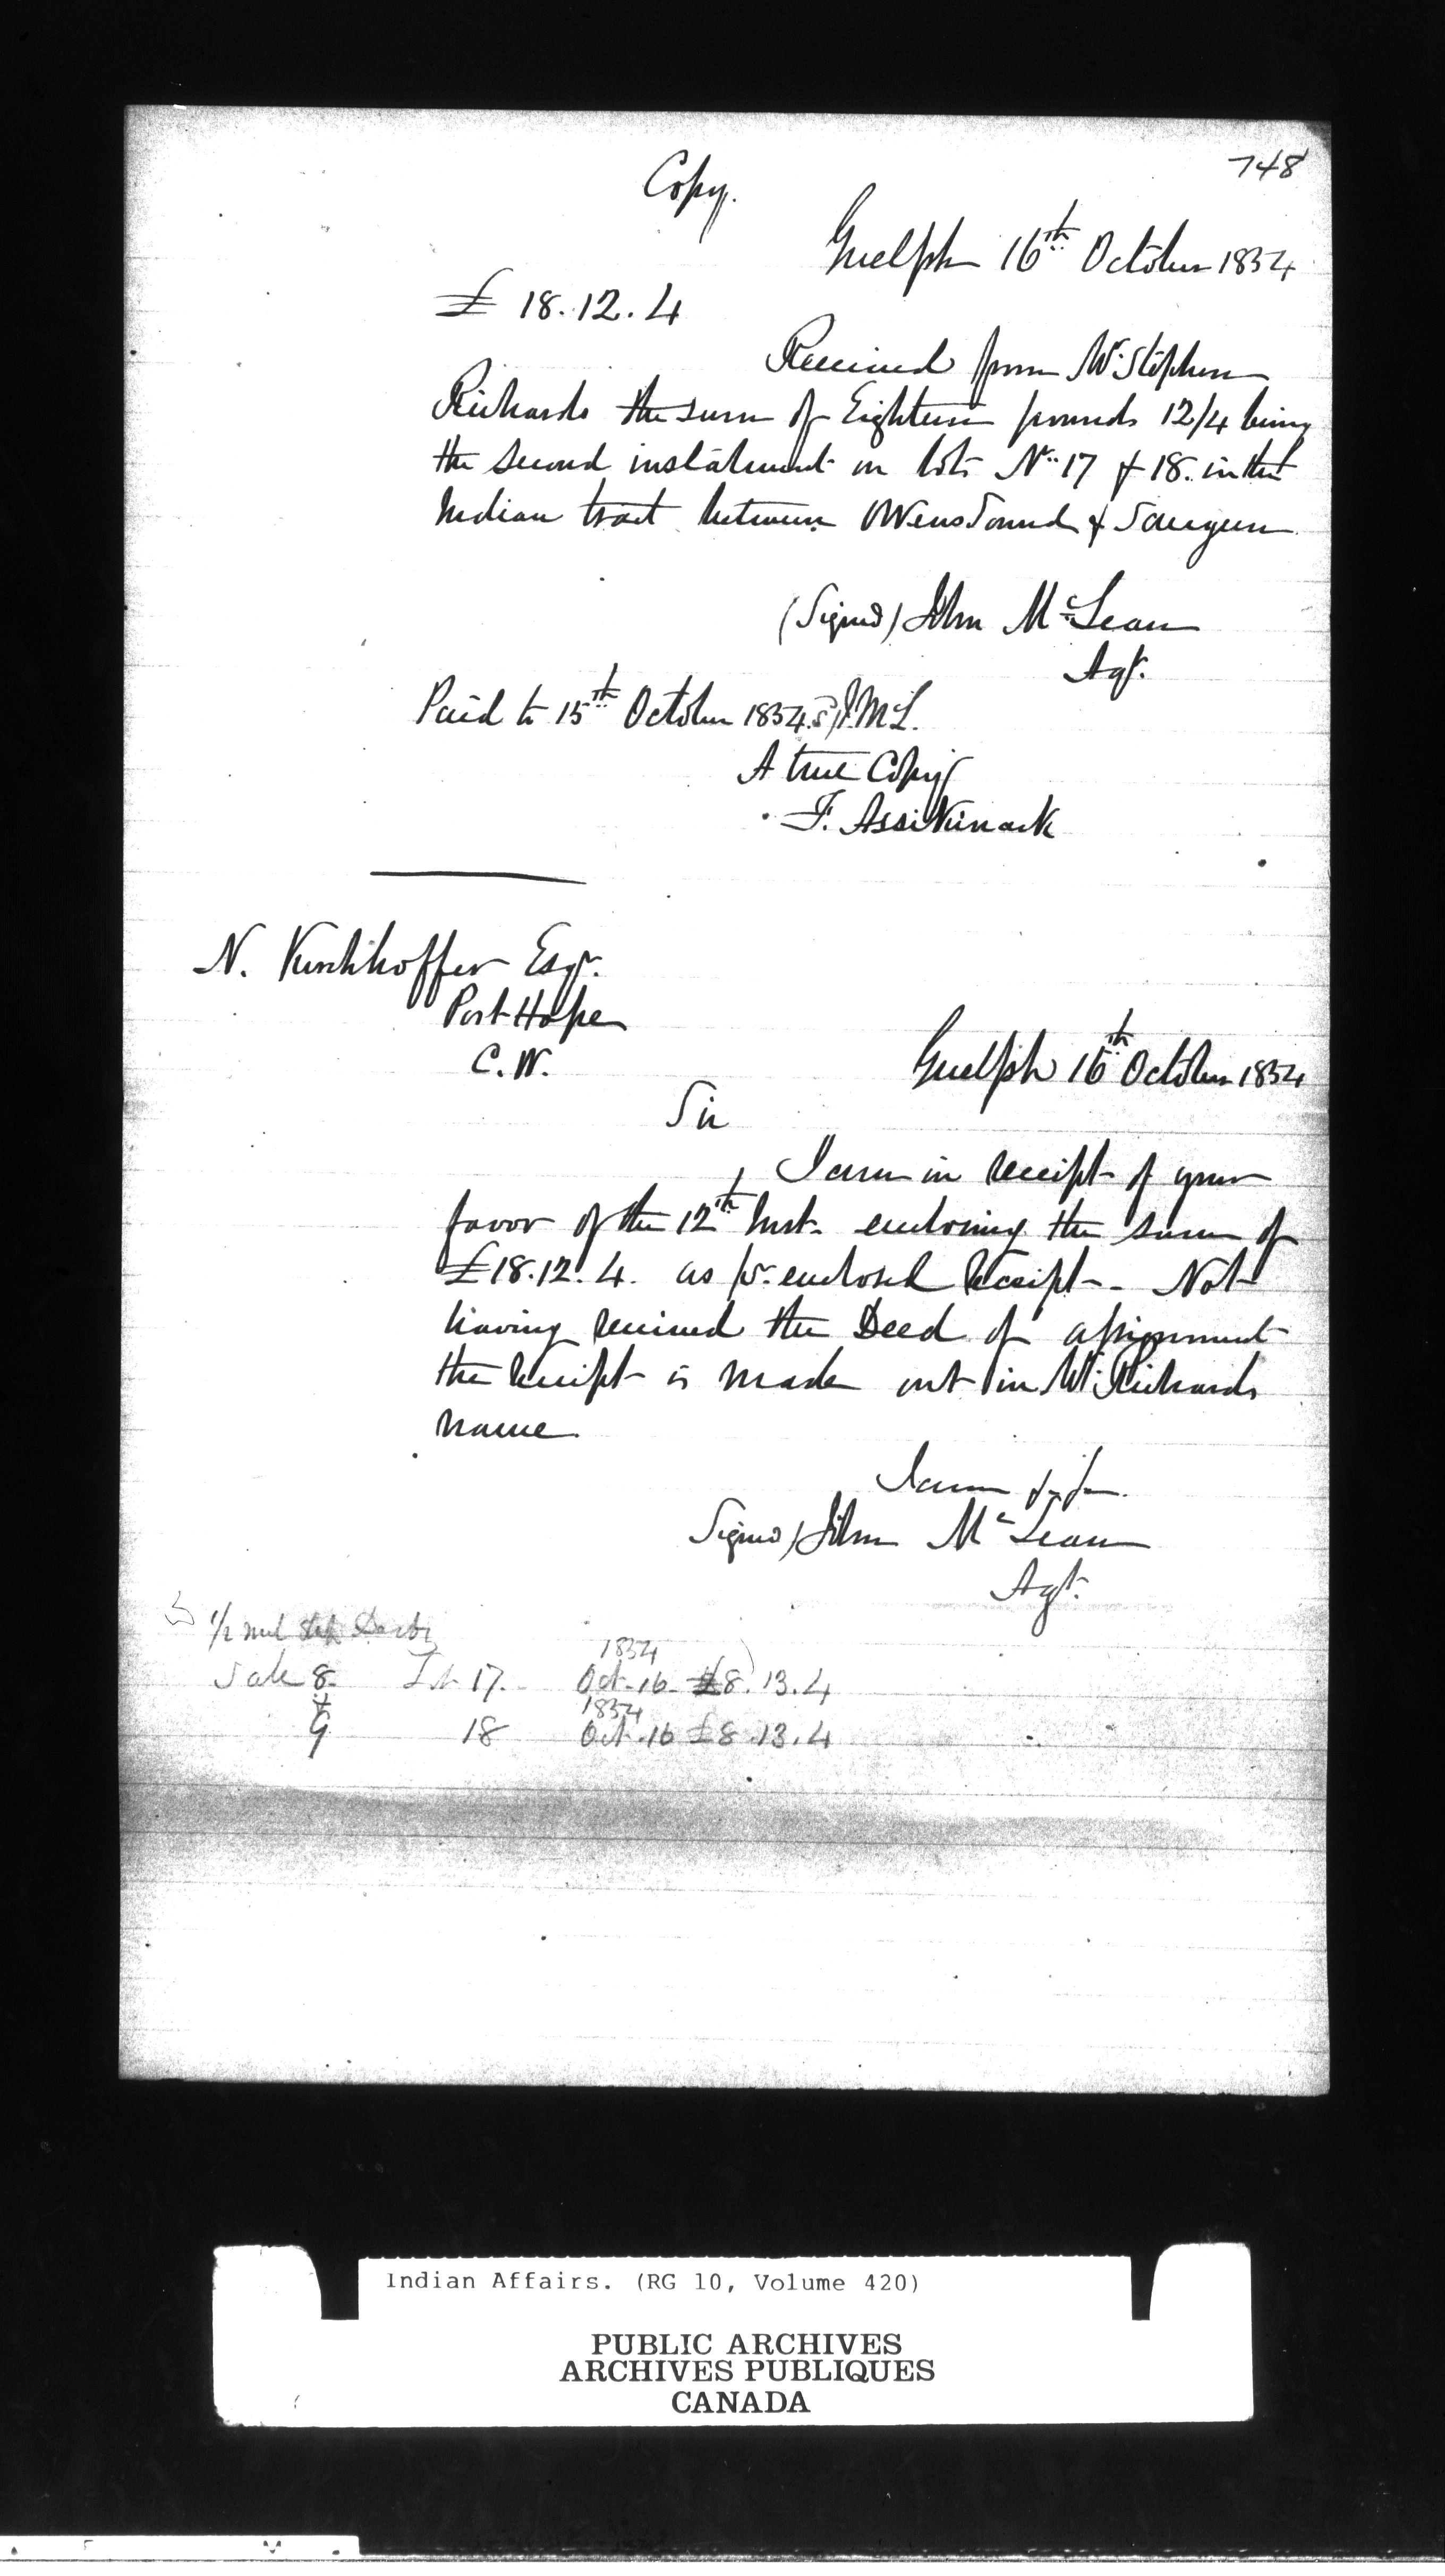 748
Copy.
Guelph 16th October 1854
£ 18.12.4
Received from Mr. Stephen
Richards the sum of Eighteen pounds 12/4 being
the second instalment on lots No. 17 & 18. in the
Indian tract between Owens Sound & Saugeen
(Signed) John McLean
Agt.
Paid to 15th October 1854. S) J. McL.
A true Copy
F. Assikinack
N. Kirchhoffer Esqr.
Port Hope
C.W.
Guelph 16th October 1854
Sir
I am in receipt of your
favor of the 12th Inst. enclosing the sum of
£18.12.4. as pr. enclosed receipt. Not
having received the Deed of assignment
the receipt is made out in Mr. Richards
name
I am &c &c.
Signed) John McLean
Agt.
1/2 mile Strip Derby
1854
Sale 8 Lot 17. Oct. 16 £8.13.4
&
1854
9 18 Oct. 16 £8.13.4
Indian Affairs. (RG 10, Volume 420)
PUBLIC ARCHIVES
ARCHIVES PUBLIQUES
CANADA